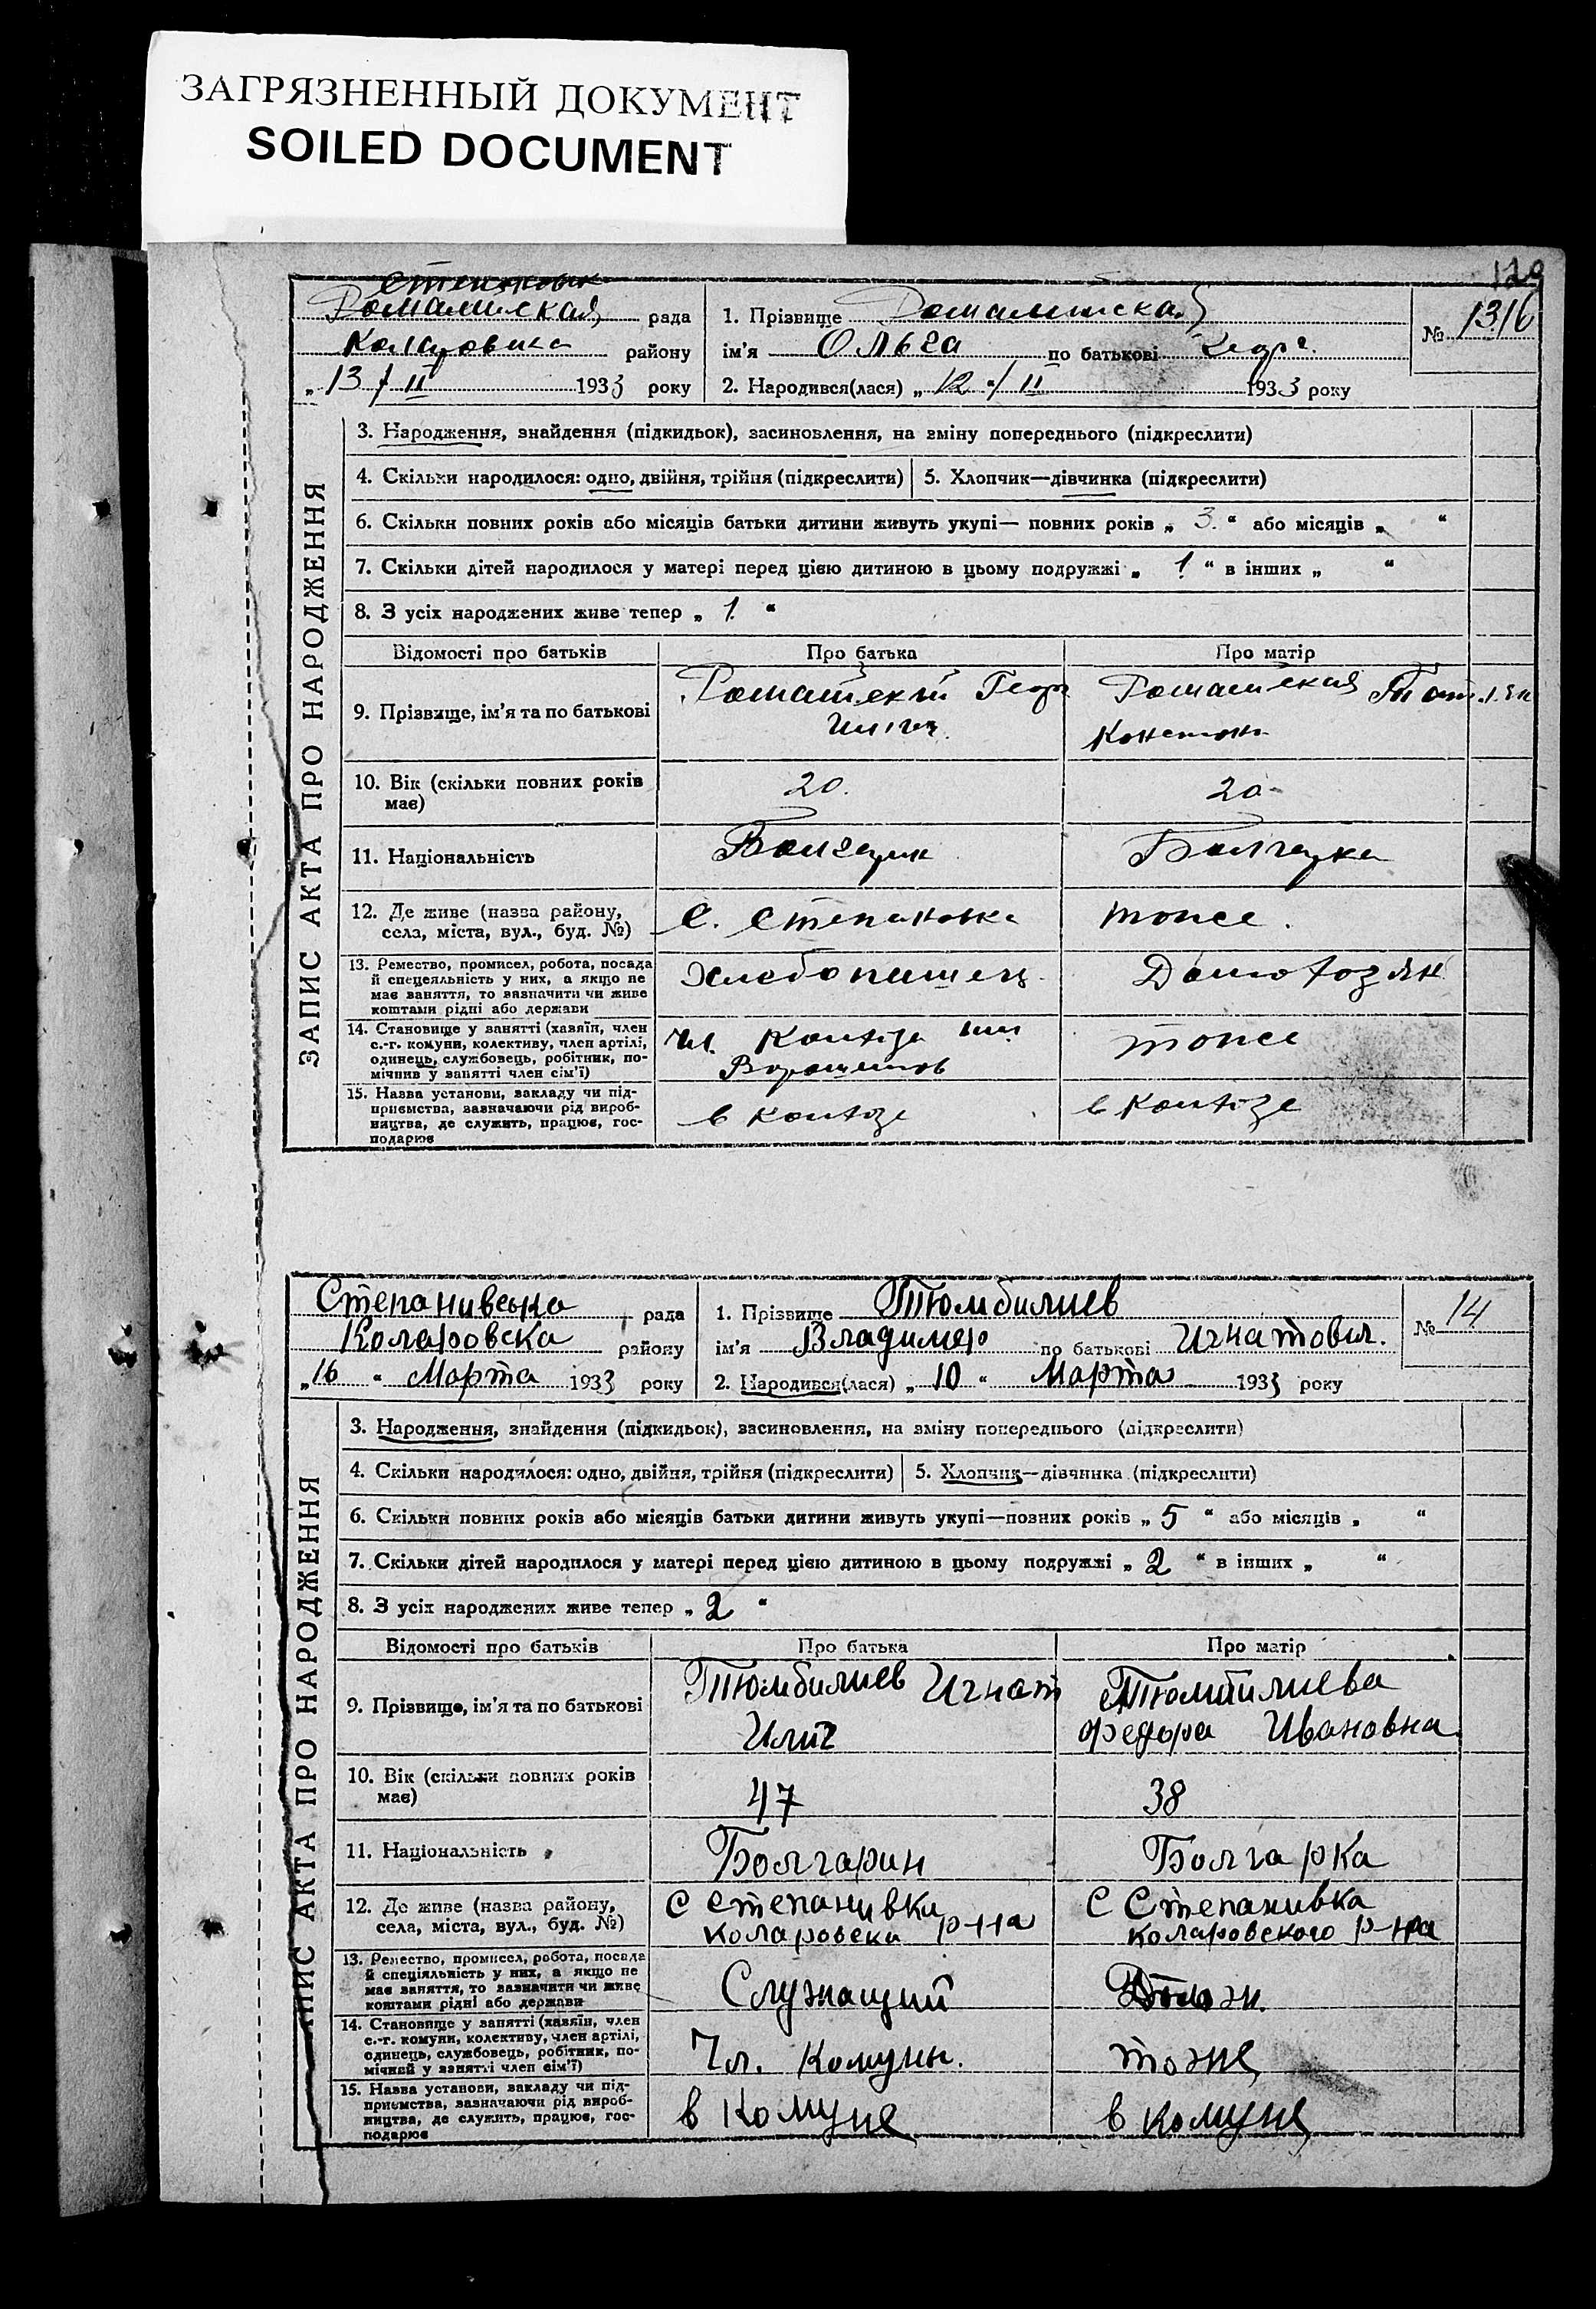 ЗАГРЯЗНЕННЫЙ ДОКУМЕНТ
SOILED DOCUMENT
ЗАПИС АКТА ПРО НАРОДЖЕННЯ
рада
району
„13 / II 1933 року
1. Прізвище
ім'я Ольга по батькові
2. Народився(лася) „12 “/ II 1933 року
№ 13
3. Народження, знайдення (підкидьок), засиновлення, на зміну попереднього (підкреслити)
4. Скільки народилося: одно, двійня, трійня (підкреслити)
5. Хлопчик—дівчинка (підкреслити)
6. Скільки повних років або місяців батьки дитини живуть укупі— повних років „ 3. “ або місяців „ “
7. Скільки дітей народилося у матері перед цією дитиною в цьому подружжі „ 1 “ в інших „ “
8. З усіх народжених живе тепер „ 1. “
Відомості про батьків
Про батька
Про матір
9. Прізвище, ім'я та по батькові
10. Вік (скільки повних років
має)
20.
20
11. Національність
Болгарин
Болгарка
12. Де живе (назва району,
села, міста, вул., буд. №)
С. Степановка
тоже.
13. Ремество, промисел, робота, посада
й спецеяльність у них, а якщо не
має заняття, то зазначити чи живе
коштами рідні або держави
Хлебопашец
Домохозяй
14. Становище у занятті (хазяїн, член
с.-г. комуни, колективу, член артілі,
одинець, службовець, робітник, по-
мічник у занятті член сім'ї)
Чл. Колхоза им
тоже
15. Назва установи, закладу чи під-
приємства, зазначаючи рід вироб-
ництва, де служить, працює, гос-
подарює
в Колхозе
в Колхозе
ЗАПИС АКТА ПРО НАРОДЖЕННЯ
Степанивська рада
Коларовска району
„16 “ Марта 1933 року
1. Прізвище Тюмбилиев
ім'я Владимер по батькові Игнатович.
2. Народився(лася) „ 10 “ Марта 1933 року
№ 14
3. Народження, знайдення (підкидьок), засиновлення, на зміну попереднього (підкреслити)
4. Скільки народилося: одно, двійня, трійня (підкреслити)
5. Хлопчик—дівчинка (підкреслити)
6. Скільки повних років або місяців батьки дитини живуть укупі—повних років „ 5 “ або місяців „ “
7. Скільки дітей народилося у матері перед цією дитиною в цьому подружжі „ 2 “ в інших „ “
8. З усіх народжених живе тепер „ 2 “
Відомості про батьків
Про батька
Про матір
9. Прізвище, ім'я та по батькові
Тюмбилиев Игнат
Илич
Федора Ивановна
10. Вік (скільки повних років
має)
47
38
11. Національність
Болгарин
Болгарка
12. Де живе (назва району,
села, міста, вул., буд. №)
С Степанивка
Коларовски р-на
С Степанивка
Коларовского р-на
13. Ремество, промисел, робота, посада
й спеціяльність у них, а якщо не
має заняття, то зазначити чи живе
коштами рідні або держави
Служащий
14. Становище у занятті (хазяїн, член
с.-г. комуни, колективу, член артілі,
одинець, службовець, робітник, по-
мічний у занятті член сім'ї)
Чл. Комуны.
тоже
15. Назва установи, закладу чи під-
приємства, зазначаючи рід вироб-
ництва, де служить, працює, гос-
подарює
в Комуне
в Комуне